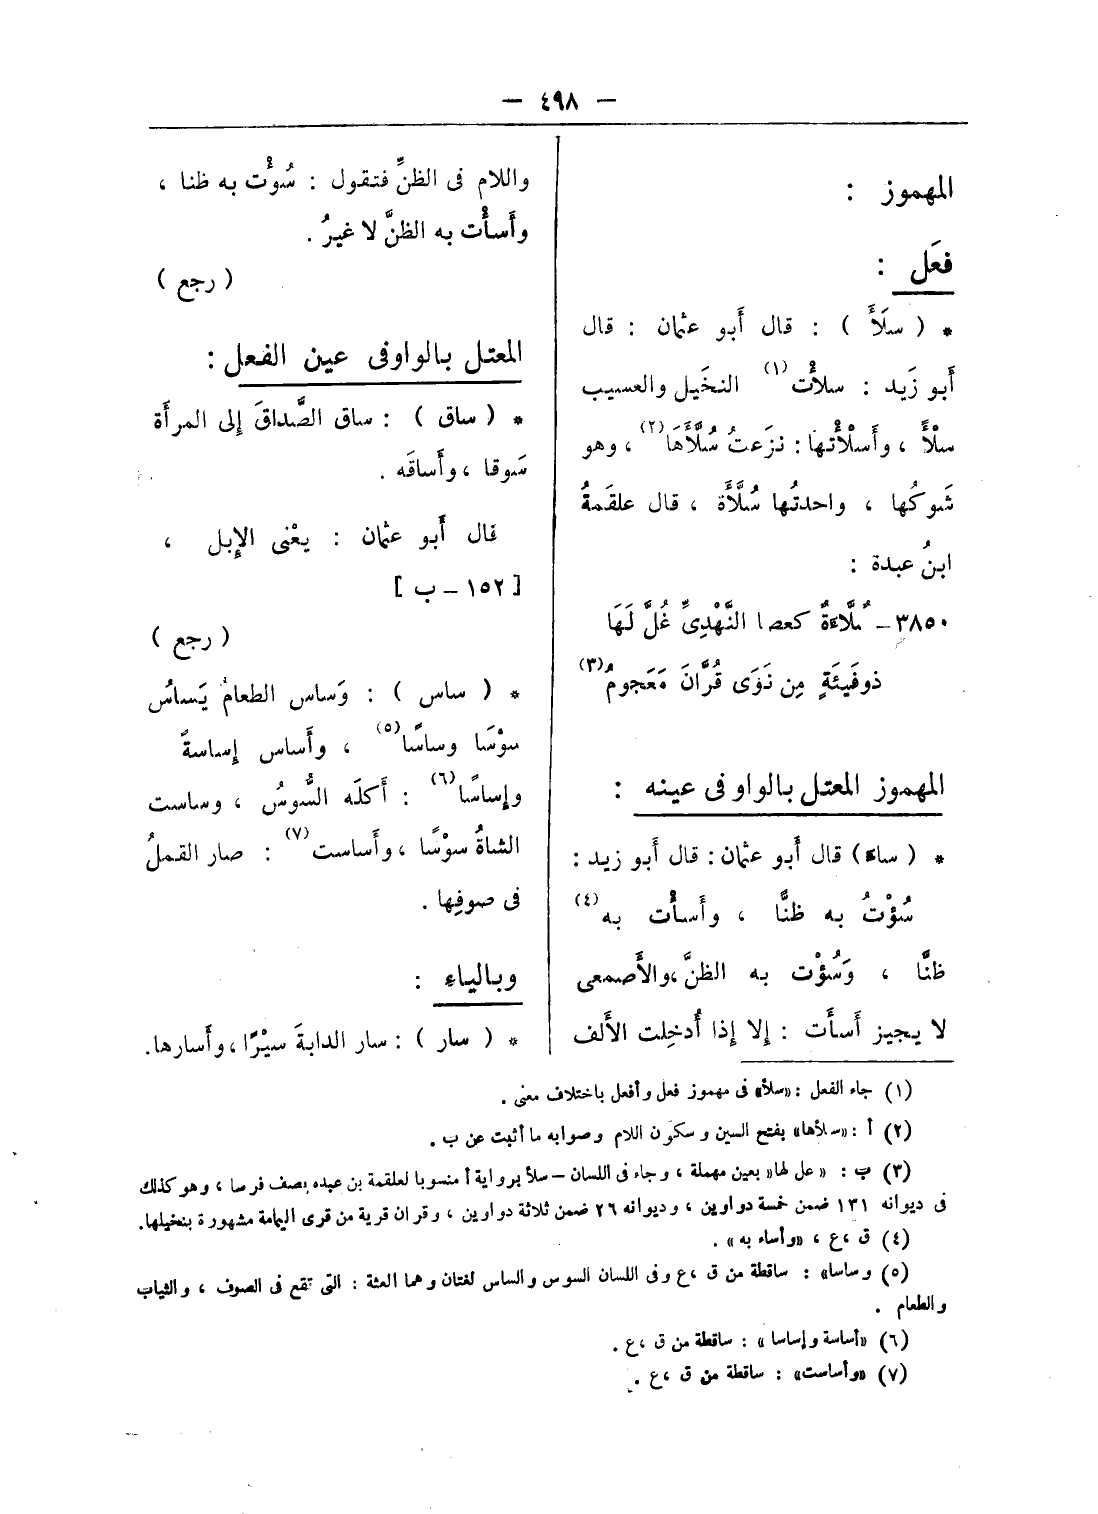 — ٤٩٨ —
المهموز :
فعَل :
* ( سَلَأَ ) : قال أَبو عثمان : قال
أَبو زَيد : سلأْت(١) النخَيل والعسيب
سلْأً ، وأَسلْأْتها : نزَعتُ سُلَّأَهَا(٢) ، وهو
شَوكُها ، واحدتُها سُلَّأَة ، قال علقَمةُ
ابنُ عبدة :
٣٨٥٠ـ سُلَّاءَةٌ كعصا النَّهْدِىِّ غُلَّ لَهَا
ذوفَيئَةٍ مِن نَوَى قُرَّانَ مَعَجومُ(٣)
المهموز المعتل بالواو فى عينه :
* ( ساء) قال أَبو عثمان : قال أَبو زيد :
سُؤْتُ به ظنًّا ، وأَسأْت به(٤)
ظنًّا ، وَسُؤْت به الظنَّ ،والأَصمعى
لا يجيز أَسأَت : إلا إذا أُدخِلت الأَلف
واللام فى الظنِّ فتقول : سُوْت به ظنا ،
وأَسأْت به الظنَّ لا غيرُ .
( رجع )
المعتل بالواوفى عين الفعل :
* ( ساق ) : ساق الصَّداقَ إلى المرأَة
سَوقا ، وأَساقَه .
قال أَبو عثمان : يعْنى الإبل ،
[ ١٥٢ ـ ب ]
( رجع )
* ( ساس ) : وَساس الطعامُ يَساسُ
سوْسَا وساسًا(٥) ، وأَساس إساسةً
وإساسًا(٦) : أَكلَه السُّوسُ ، وساست
الشاةُ سوْسًا ، وأَساست(٧) : صار القملُ
فى صوفِها .
وبالياء :
* ( سار ) : سار الدابةَ سيْرًا ، وأَسارها.
(١) جاء الفعل : «سلأ» فى مهموز فعل وأفعل باختلاف معنى .
(٢) أ : «سلأها» بفتح السين وسكون اللام وصوابه ما أثبت عن ب .
(٣) ب : « عل لها» بعين مهملة ، وجاء فى اللسان – سلأ برواية أ منسوبا لعلقمة بن عبده يصف فرسا ، وهو كذلك
فى ديوانه ١٣١ ضمن خمسة دواوين ، وديوانه ٢٦ ضمن ثلاثة دواوين ، وقران قرية من قرى اليمامة مشهورة بنخيلها.
(٤) ق ، ع ، «وأساء به» .
(٥) وساسا» : ساقطة من ق ، ع وفى اللسان السوس والساس لغتان وهما العثة : التى تقع فى الصوف ، والثياب
والطعام .
(٦) «أساسة وإساسا » : ساقطة من ق ، ع .
(٧) «وأساست» : ساقطة من ق ، ع .